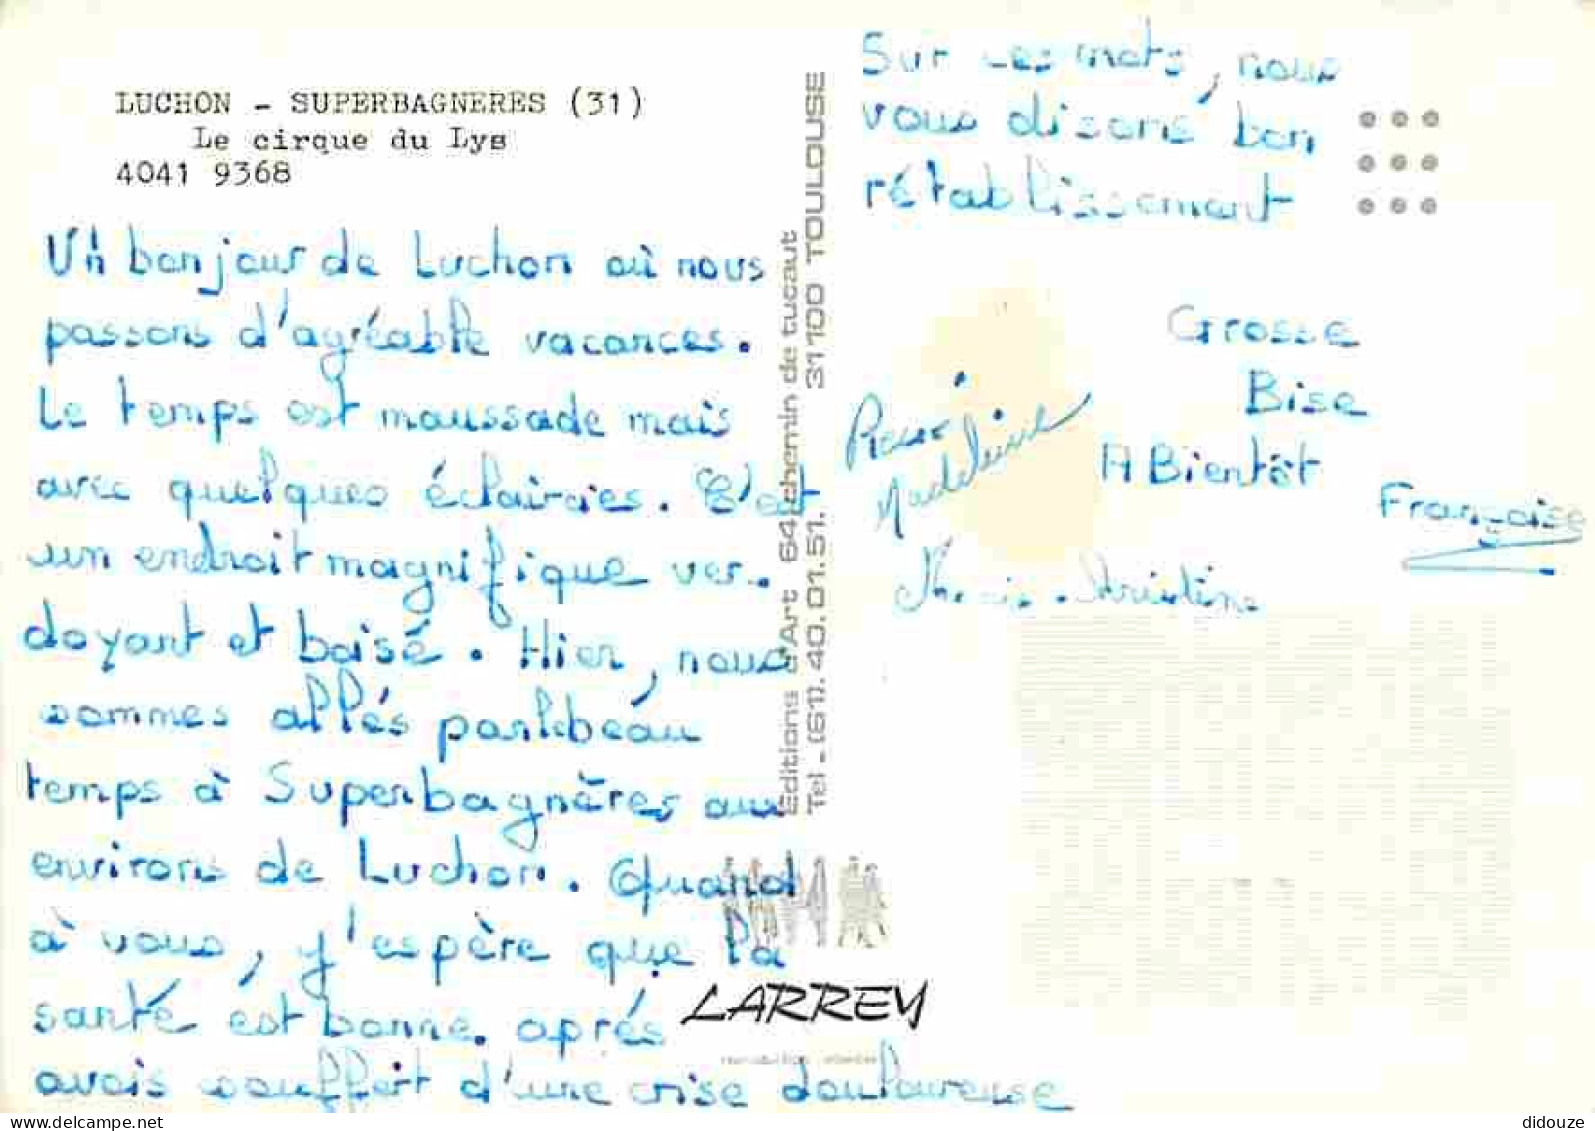 LUCHON - SUPERBAGNERES (31)
Le cirque du Lys
4041 9368
Un bonjour de Luchon où nous
passons d'agréable vacances.
Le temps est maussade mais
avec quelques éclaircies. C'est
un endroit magnifique ver-
doyant et boisé. Hier, nous
sommes allés par le beau
temps à Superbagnères aux
environs de Luchon. Quand
à vous, j'espère que la
santé est bonne. après
avais souffert d'une crise douloureuse
Sur ces mots, nous
vous disons bon
rétablissement
Grosse
Bise
A Bientôt
Françoise
Pierre
Madeleine
Marie-Christine
Editions d'Art 64 chemin de tucaut
Tel - (61). 40.01.51. 31100 TOULOUSE
LARREY
reproduction interdite
didouze